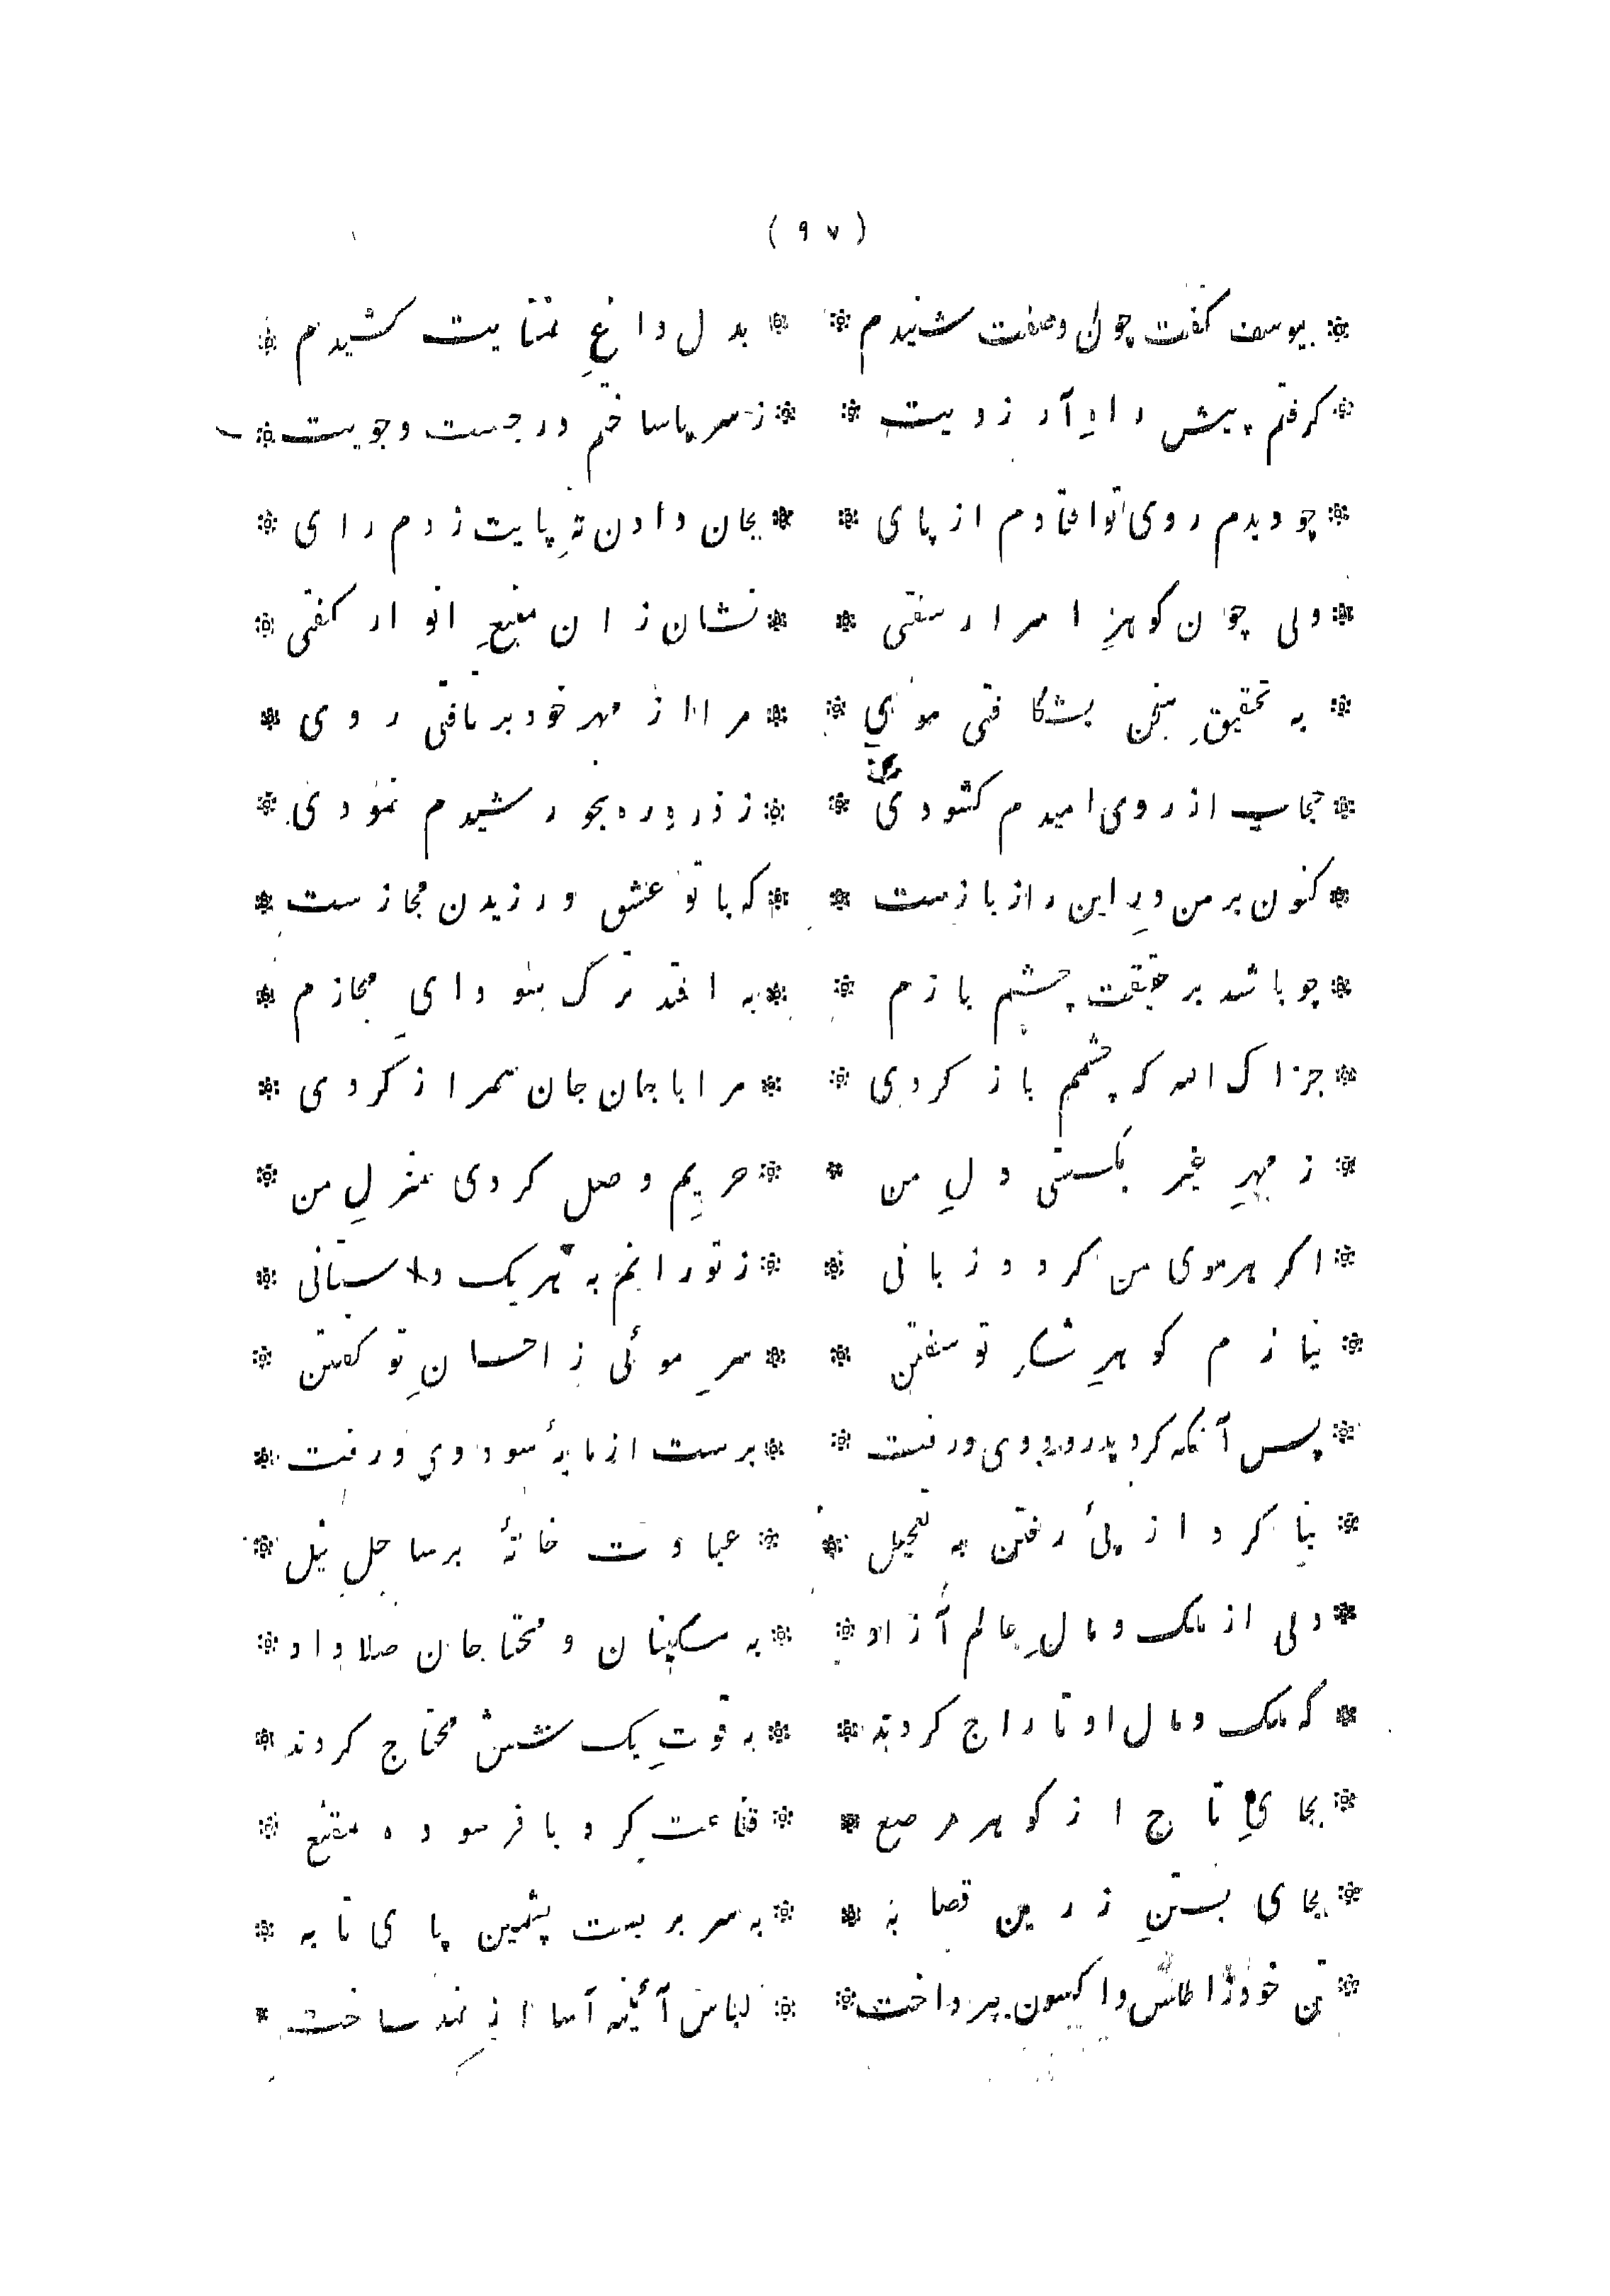 ( ٩٧ )
بیوسف کفت چون وصفت شنیدم * بدل داغِ تمنایت کشیدم
کرفتم پیش راهِ آرزویت * ز سر پا ساختم در جست وجویت
چو دیدم روی تو افتادم از پای * بجان دادن تهِ پایت زدم رای
ولی چون کوهرِ اسرار سفتی * نشان زان منبعِ انوار کفتی
به تحقیقِ سخن بشکافتی موی * مرا از مهر خود برتافتی روی
حجاب از روی امیدم کشودی * ز ذره ره بخورشیدم نمودی
کنون بر من درِ این راز بازست * که با تو عشق ورزیدن مجازست
چو باشد بر حقیقت چشم بازم * به افتد ترک سودایِ مجازم
جزاک الله که چشمم باز کردی * مرا با جان جان همراز کردی
ز مهرِ غیر بکستی دلِ من * حریمِ وصل کردی منزلِ من
اکر هر موی من کردد زبانی * ز تو رانم به هریک داستانی
نیازم کوهرِ شکرِ تو سفتن * سرِ موئی ز احسانِ تو کفتن
پس آنکه کرد پدرود وی و رفت * برست از مایهٔ سود وی و رفت
بنا کرد از پیٔ رفتن به تعجیل * عبادت خانهٔ بر ساحلِ نیل
ولی از ملک و مالِ عالم آزاد * به مسکینان و محتاجان صلا داد
که ملک و مال او تاراج کردند * به قوتِ یک شبش محتاج کردند
بجایِ تاج از کوهر مرصع * قناعت کرد با فرسوده مقنع
بجای بستنِ زرین قصابه * به سر بر بست پشمین پای تابه
تن خود ز اطلس و اکسون بپرداخت * لباس آئینه آسا از نمد ساخت